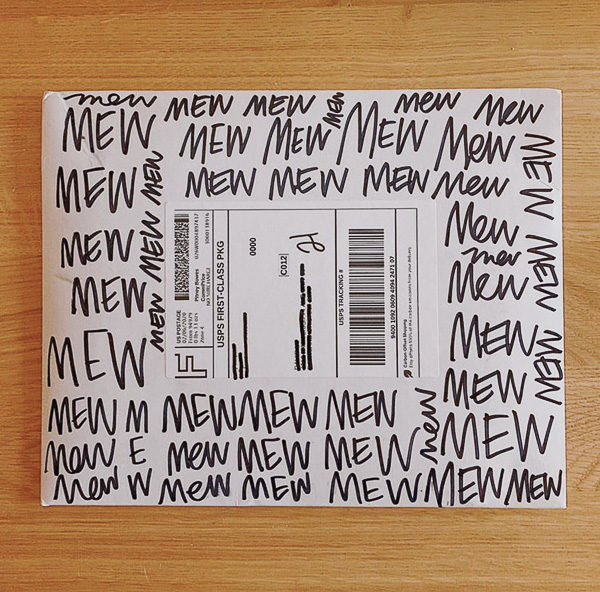 mew MEW MEW MEW mew mew
MEW MEW MEW MEW MEW MEW
MEW MEW MEW MEW MEW MEW MEW
MEW MEW mew
mew
MEW MEW mew MEW
MEW MEW
MEW MEW MEW
MEW M MEW MEW MEW mew MEW
mew E mew MEW MEW
mew W mew MEW MEW MEW MEW
US POSTAGE
02/06/2020
From 94979
Zone 4
Pitney Bowes
CommPrice
NO SURCHARGE
USPS FIRST-CLASS PKG
0000
C012
21
USPS TRACKING #
9400 1092 0609 4094 2471 07
Carbon-Offset Shipping